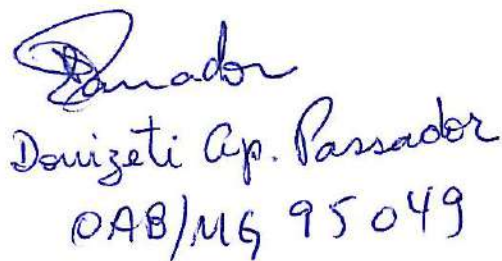 Passador
Donizeti Ap. Passador
OAB/MG 95049